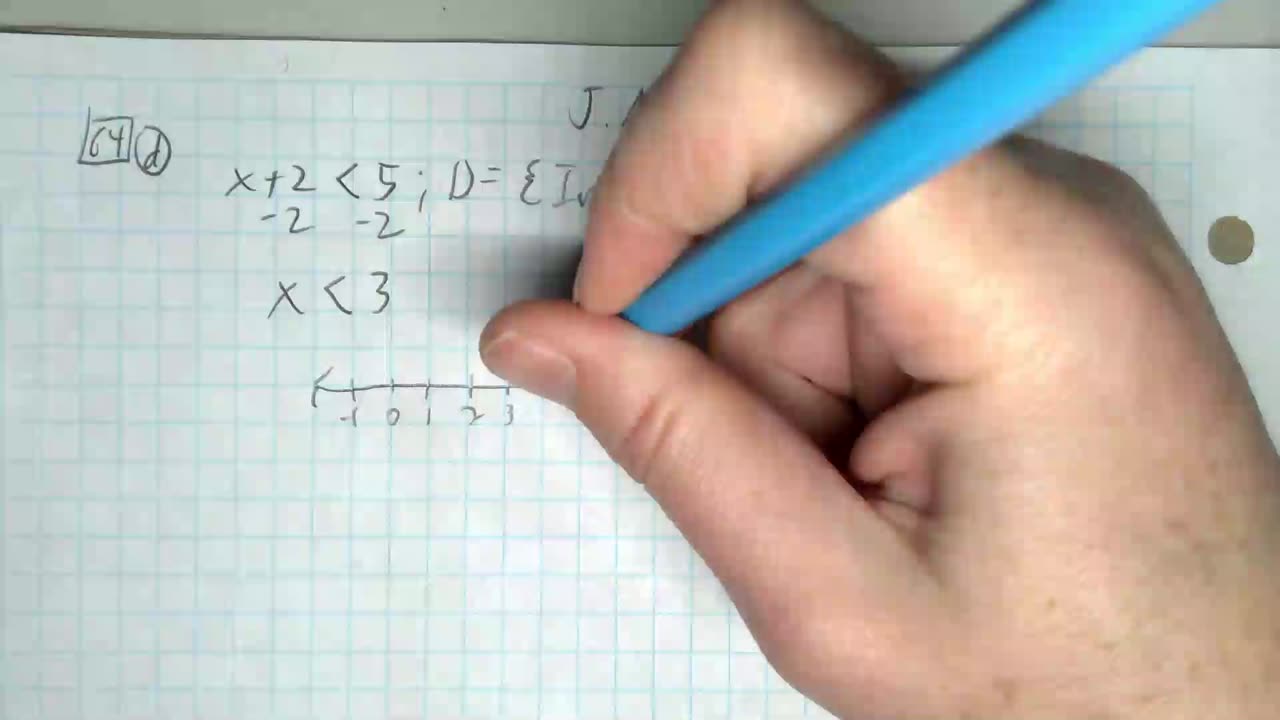 J.
64 d
x+2 < 5 ; D= {I
-2 -2
x < 3
-1 0 1 2 3